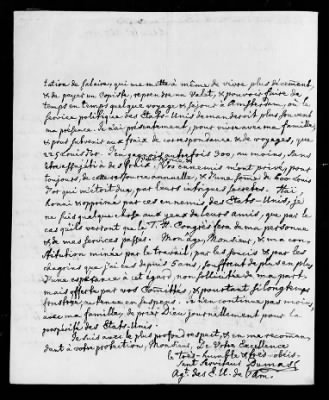 tation de salaire, qui me mette à même de vivre plus décemment,
& de payer un Copiste, reprendre un Valet, & pouvoir faire de
temps en temps quelque voyage & séjour à Amsterdam, où le
service politique des Etats-Unis demanderoit plus souvent
ma présence. Je n'ai présentement, pour vivre avec ma famille,
& pour subvenir aux fraix de correspondance & de voyages, que
225 Louis d'or. J'en avois autrefois 300, au moins, sans
Vos ennemis m'ont privé, pour
toujours, de cette ressource annuelle, & d'une somme de 600 Louis
d'or qui m'étoit due, par leurs intrigues secretes. Haï,
honni & opprimé par ces ennemis, des Etats-Unis, je
ne suis quelque chose aux yeux de leurs amis, que par le
cas qu'ils verront que le T. H. Congrès fera de ma personne
& de mes services passés. Mon âge, Monsieur, & ma con-
stitution minée par le travail, par les soucis & par les
chagrins que j'ai eus depuis 8 ans, souffrent de plus en plus
d'une espérance à cet égard, non sollicitée de ma part,
mais offerte par vos Comittés, & pourtant si longtemps
en suspens. Je n'en continue pas moins,
avec ma famille, de prier Dieu journellement pour la
prospérité des Etats-Unis.
Je suis avec le plus profond respect, & en me recomman-
dant à votre protection, Monsieur, De Votre Excellence
le très-humble & très-obéis-
sant serviteur Dumas
Agt. des E. U. de l'Am.